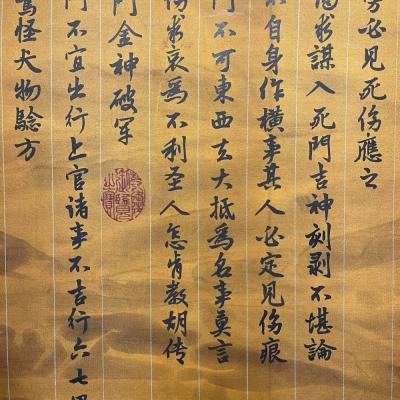 必見死伤應之
求謀入死門吉神刻剥不堪論
自身作横事其人必定見伤痕
門不可東西去大抵為名事莫言
求哀為不利圣人怎肯教胡传
門金神破军
門不宜出行上官诸事不吉行六七里
怪犬物驗方